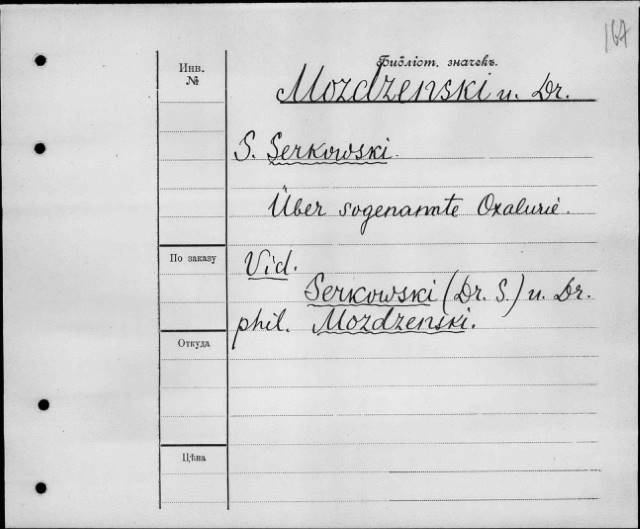 167
Инв.
№
Библіот. значекъ.
Mozdzenski u. Dr.
S. Serkowski.
Über sogenannte Oxalurie.
По заказу
Vid.
Serkowski (Dr. S.) u. Dr.
phil. Mozdzenski.
Откуда
Цѣна